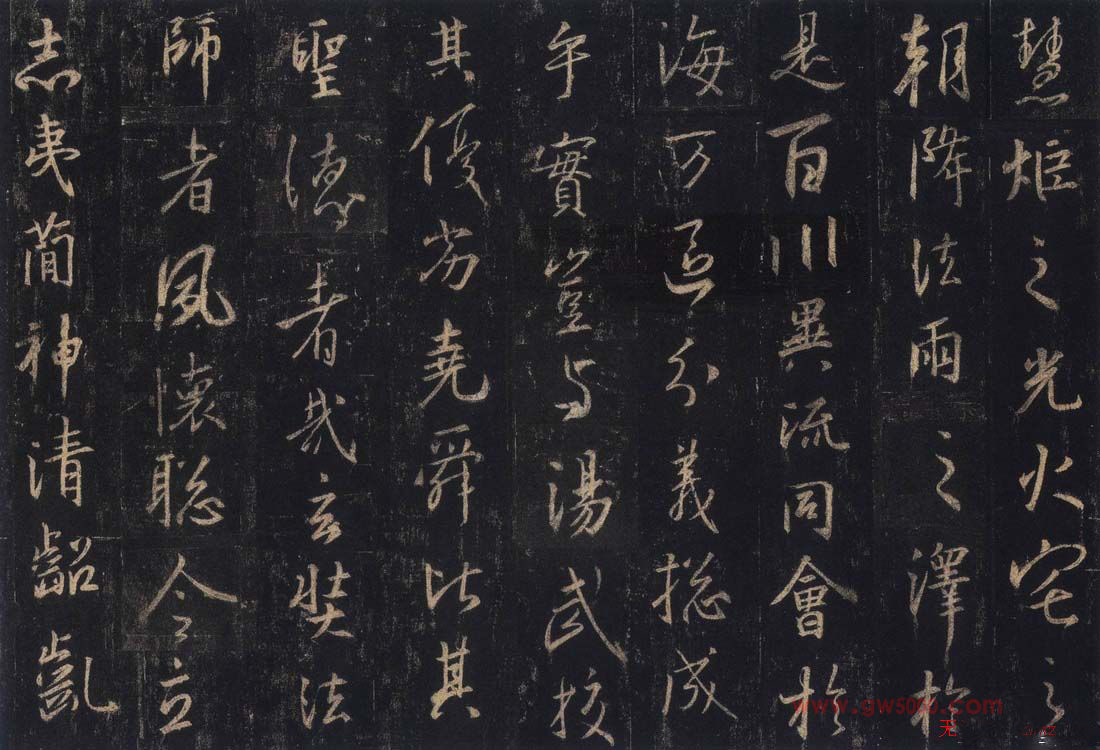 慧炬之光火宅之
朝降法雨之澤於
是百川異流同會於
海万區分義揔成
乎實豈与湯武挍
其優劣堯舜比其
聖德者哉玄奘法
師者夙懷聡令立
志夷簡神清齠齓
www.gw5050.com